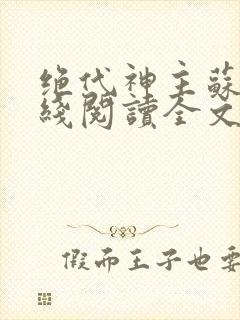 绝代神主蘇
綫閱讀全文
假而王子也要